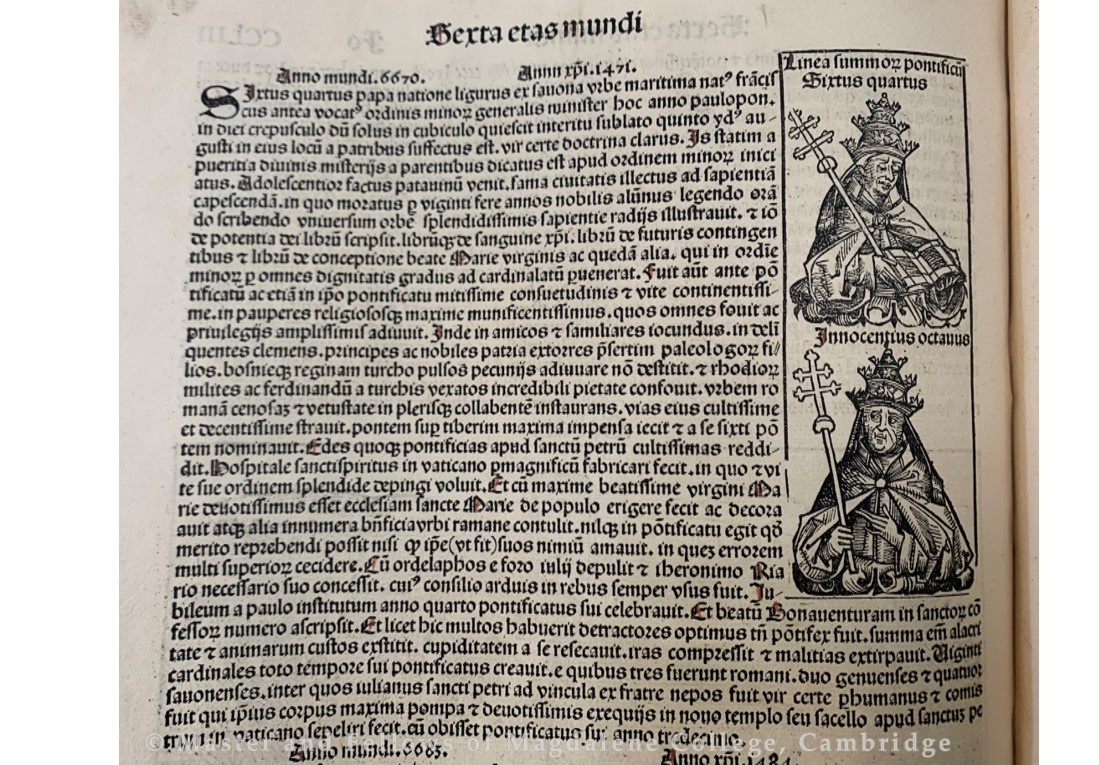 Sexta etas mundi
Anno mundi.6670. Annn xp̄i.1471.
SIxtus quartus papa natione ligurus ex sauona vrbe maritima natꝰ frācis
cus antea vocatꝰ ordinis minoꝝ generalis minister hoc anno paulopon.
in diei crepusculo dū solus in cubiculo quiescit interitu sublato quinto ydꝰ au-
gusti in eius locū a patribus suffectus est. vir certe doctrina clarus. Is statim a
pueritia diuinis misterijs a parentibus dicatus est apud ordinem minoꝝ inici
atus. Adolescentior factus patauinū venit. fama ciuitatis illectus ad sapientiā
capescendā. in quo moratus ꝑ viginti fere annos nobilis alūnus legendo orā
do scribendo vniuersum orbē splendidissimis sapientie radijs illustrauit. ⁊ iō
de potentia dei librū scripsit. librūqꝫ de sanguine xp̄i. librū de futuris contingen
tibus ⁊ librū de conceptione beate Marie virginis ac quedā alia. qui in ordīe
minoꝝ ꝑ omnes dignitatis gradus ad cardinalatū ꝑuenerat. Fuit aūt ante pō
tificatū ac etiā in ip̄o pontificatu mitissime consuetudinis ⁊ vite continentissi-
me. in pauperes religiososqꝫ maxime munificentissimus. quos omnes fouit ac
priuilegijs amplissimis adiuuit. Inde in amicos ⁊ familiares iocundus. in deli
quentes clemens. principes ac nobiles patria extorres p̄sertim paleologoꝝ fi//
lios. bosnieqꝫ reginam turcho pulsos pecunijs adiuuare nō destitit. ⁊ rhodioꝝ
milites ac ferdinandū a turchis vexatos incredibili pietate confouit. vrbem ro
manā cenosaꝫ ⁊ vetustate in plerisqꝫ collabentē instaurans. vias eius cultissime
et decentissime strauit. pontem sup tiberim maxima impensa iecit ⁊ a se sixti pō
tem nominauit. Edes quoqꝫ pontificias apud sanctū petrū cultissimas reddi-
dit. Hospitale sanctispiritus in vaticano ꝑmagnificū fabricari fecit. in quo ⁊ vi
te sue ordinem splendide depingi voluit. Et cū maxime beatissime virgini Ma
rie deuotissimus esset ecclesiam sancte Marie de populo erigere fecit ac decora
auit atqꝫ alia innumera bn̄ficia vrbi ramane contulit. nilqꝫ in pōtificatu egit qd̄
merito reprehendi possit nisi ꝙ ip̄e (vt fit) suos nimiū amauit. in queꝫ errorem
multi superioꝝ cecidere. Cū ordelaphos e foro iulij depulit ⁊ iheronimo Ria
rio necessario suo concessit. cuiꝰ consilio arduis in rebus semper vsus fuit. Iu-
bileum a paulo institutum anno quarto pontificatus sui celebrauit. Et beatū Bonauenturam in sanctoꝝ cō
fessoꝝ numero ascripsit. Et licet hic multos habuerit detractores optimus tn̄ pōtifex fuit. summa em̄ alacri
tate ⁊ animarum custos exstitit. cupiditatem a se resecauit. iras compressit ⁊ malitias extirpauit. Viginti
cardinales toto tempore sui pontificatus creauit. e quibus tres fuerunt romani. duo genuenses ⁊ quatuor
sauonenses. inter quos iulianus sancti petri ad vincula ex fratre nepos fuit vir certe ꝑhumanus ⁊ comis
fuit qui ip̄ius corpus maxima pompa ⁊ deuotissimis exequijs in nouo templo seu sacello apud sanctuꝫ pe
trum in vaticano sepeliri fecit. cū obisset pontificatus sui anno tredecimo.
Anno mundi.6683. Anno xp̄i.1484.
Linea summoꝝ pontificū
Sixtus quartus
Innocentius octauus
© Master and Fellows of Magdalene College, Cambridge